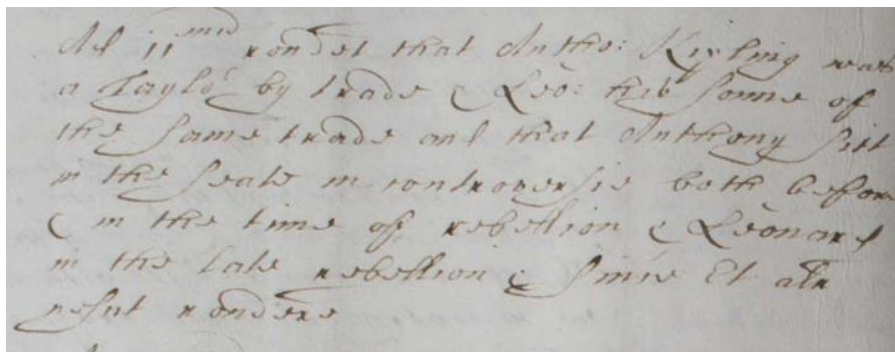 Ad 11mum rondet that Antho: Kipling was
a Taylor by trade & Leo: his sonne of
the same trade and that Anthony sitt
in the seate in controversie both before
& in the time of rebellion & Leonard
in the late rebellion & since Et alr
nescit rondere